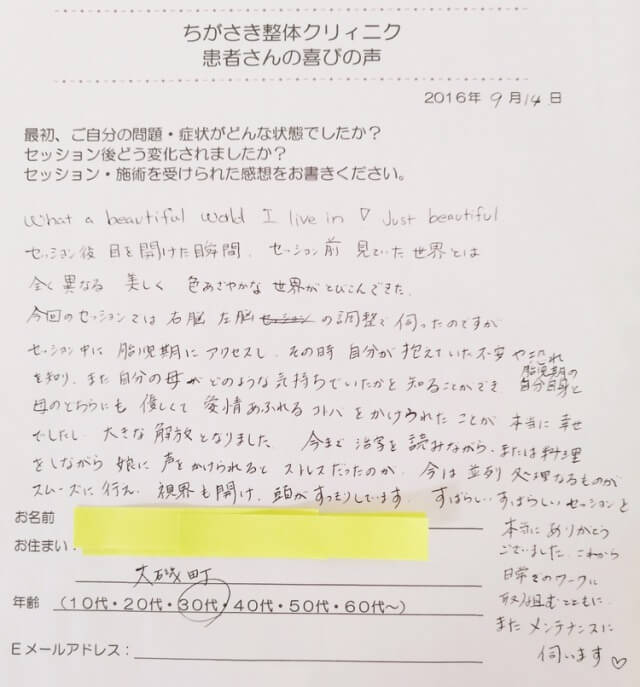 ちがさき整体クリィニク
患者さんの喜びの声
2016年 9月14日
最初、ご自分の問題・症状がどんな状態でしたか？
セッション後どう変化されましたか？
セッション・施術を受けられた感想をお書きください。
What a beautiful world I live in ♡ Just beautiful
セッション後 目を開けた瞬間、セッション前 見ていた世界とは
全く異なる 美しく 色あざやかな 世界がとびこんできた。
今回のセッションでは 右脳 左脳 の調整で 伺ったのですが
セッション中に 胎児期に アクセスし、その時 自分が 抱えていた不安や
を知り、また自分の母がどのような気持ちでいたかを 知ることができ 胎児期の自分自身と
母のどちらにも 優しくて 愛情あふれる コトバ をかけられたことが 本当に 幸せ
でしたし、大きな 解放となりました。今まで 活字を 読みながら、または料理
をしながら 娘に 声をかけられると ストレスだったのが、今は並列処理なるものが
スムーズに行え、視界も開け、頭がすっきりしています。すばらしいすばらしいセッションを
本当に ありがとう
ございました。これから
日常でのワークに
取り組むとともに
また メンテナンスに
伺います♡
お名前
お住まい：
大磯町
年齢 （10代・20代・30代・40代・50代・60代～）
Eメールアドレス：